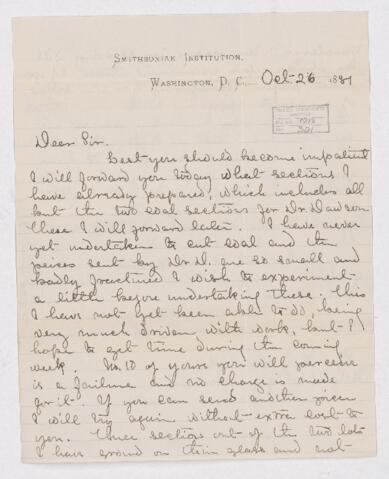 SMITHSONIAN INSTITUTION,
WASHINGTON, D. C. Oct-26 1881
Dear Sir.
Lest you should become impatient
I will forward you today what sections I
have already prepared, which includes all
but the two coal sections for Dr. Dawson
These I will forward later. I have never
yet undertaken to cut coal and the
peices sent by Dr. D. are so small and
badly fractured I wish to experiment
a little before undertaking these. This
I have not yet been able to do, being
very much driven with work, but I
hope to get time during the coming
week. No. 10 of yours you will perceive
is a failure and no charge is made
for it. If you can send another piece
I will try again without extra cost to
you. Three sections out of the two lots
I have ground on thin glass and not